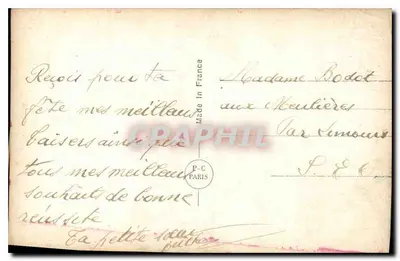 Reçois pour ta
fête mes meilleurs
baisers ainsi que
tous mes meilleurs
souhaits de bonne
réussite
Ta petite soeur
Made in France
P-C
PARIS
CARTAPHILIE
Madame Bodot
aux Meulières
Par Limours
S. & O.